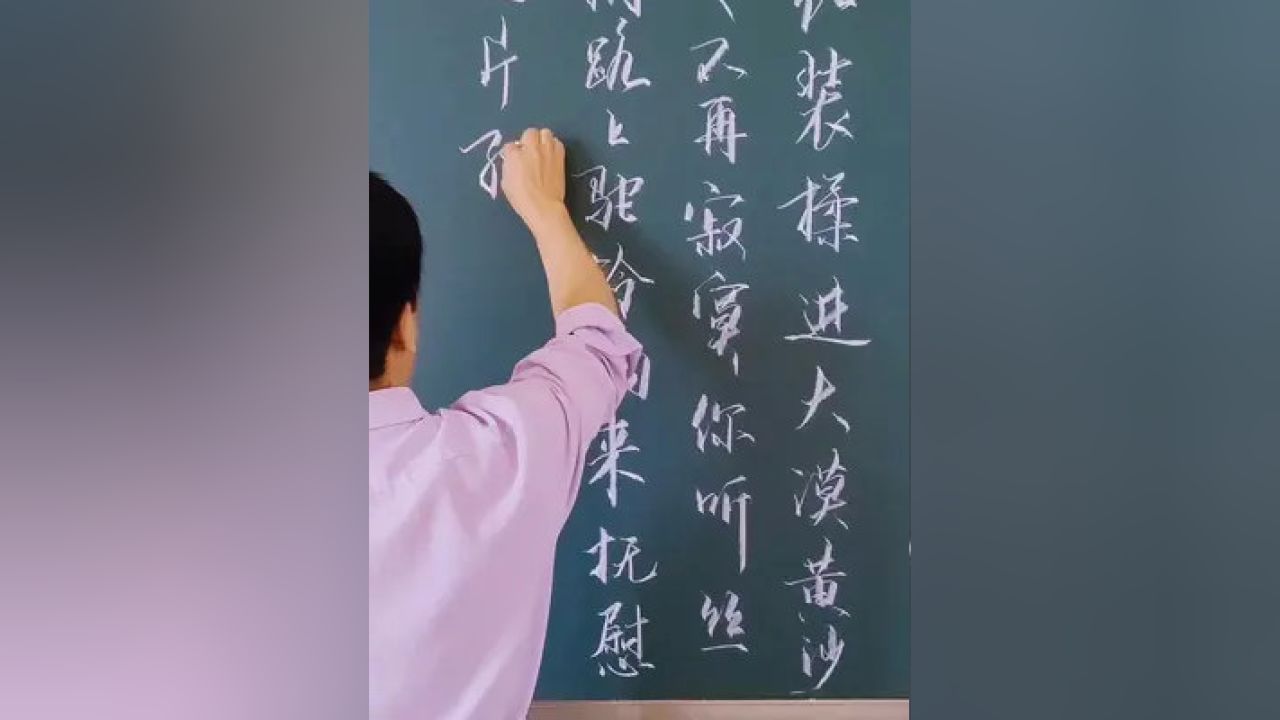 装揉进大漠黄沙
不再寂寞你听丝
路上驼铃
来抚慰
片孤